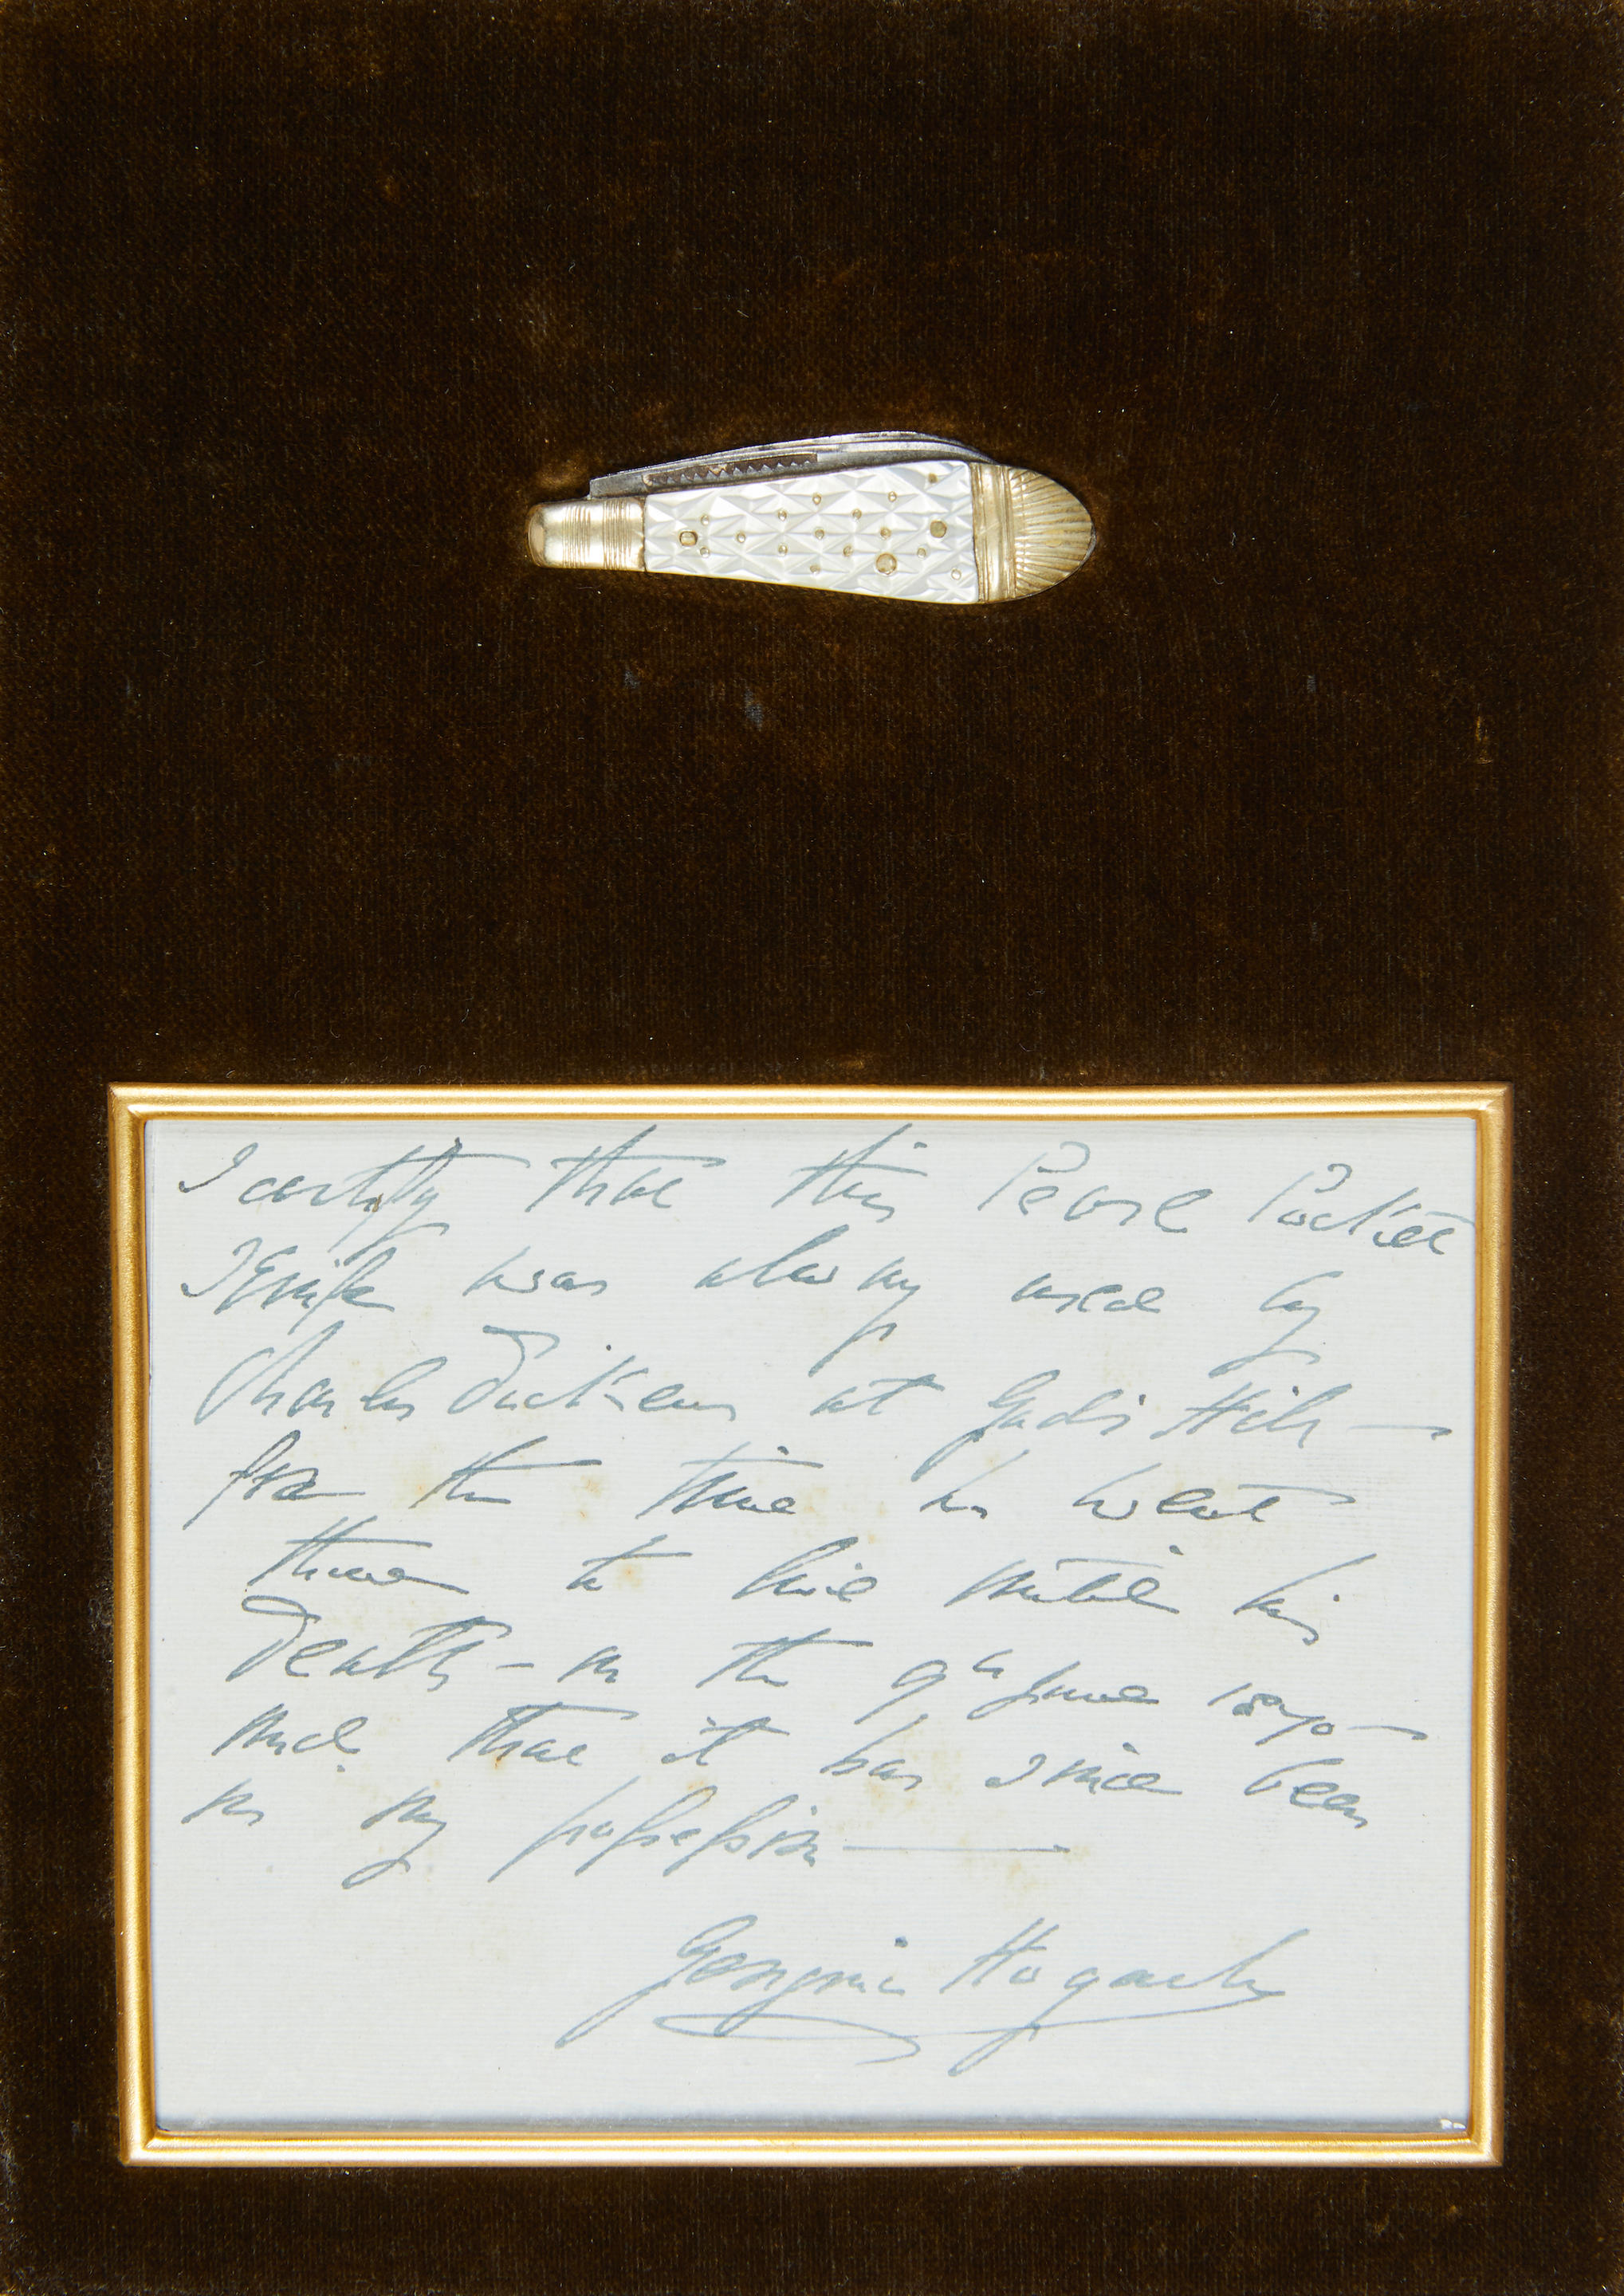 I certify that this Pearl Pocket
Knife was always used by
Charles Dickens at Gads Hill —
from the time he went
there to live until his
Death — on the 9th June 1870 —
and that it has since been
in my possession ———
Georgina Hogarth